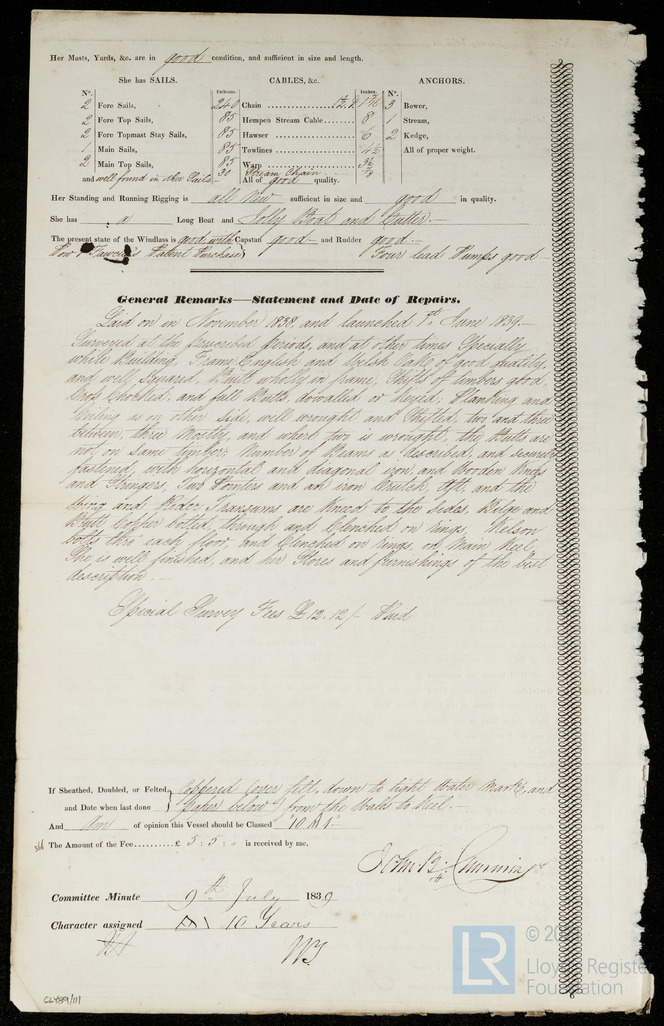 Her Masts, Yards, &c. are in good condition, and sufficient in size and length.
She has SAILS. CABLES, &c. ANCHORS.
N°. Fathoms. Inches. N°.
2 Fore Sails, 240 Chain 1 7/16 3 Bower,
2 Fore Top Sails, 85 Hempen Stream Cable 8 1 Stream,
2 Fore Topmast Stay Sails, 85 Hawser 6 2 Kedge,
1 Main Sails, 85 Towlines 4½ All of proper weight.
2 Main Top Sails, 85 Warp 3½
30 Stream Chain 7/8
and well found in other Sails All of good quality.
Her Standing and Running Rigging is all New sufficient in size and good in quality.
She has a Long Boat and Jolly Boat and Cutter.
The present state of the Windlass is good with Capstan good and Rudder good.
Patent Purchase Four lead Pumps good
General Remarks—Statement and Date of Repairs.
Laid on in November 1838, and launched 1st June 1839.
Surveyed at the prescribed Periods, and at other times Specially
while Building, Frame English and Welsh Oak of good quality,
and well Squared, Built wholly in frame, Shifts of timbers good,
Cross Chocked, and full Butts, dowalled or keyed; Planking and
Ceiling is on other side, well wrought and Shifted, two and three
between, three Mostly, and where two is wrought, the Butts are
not on same timber; Number of Beams as described, and securely
fastened, with horizontal and diagonal iron, and Wooden Knees
and Stringers, Two Pointers and an iron Crutch, Aft, and the
Wing and Transums are Kneed to the sides, Bilge and
Butt Copper bolted, through and Clenched on rings, Kelson
bolts thro' each floor, and Clenched on rings, on Main Keel.
She is well finished, and her Stores and furnishings of the best
description.
Special Survey Fees £12.12/- Paid
If Sheathed, Doubled, or Felted, Coppered over felt, down to light Water Mark, and
and Date when last done paper below from the Wales to Keel.
And Am of opinion this Vessel should be Classed "10 A 1"
The Amount of the Fee £ 5 : 5 : - is received by me,
John B. Cumming
Committee Minute 9th July 1839
Character assigned A1 10 Years
CLY89/111
LR
Lloyd's Register
Foundation